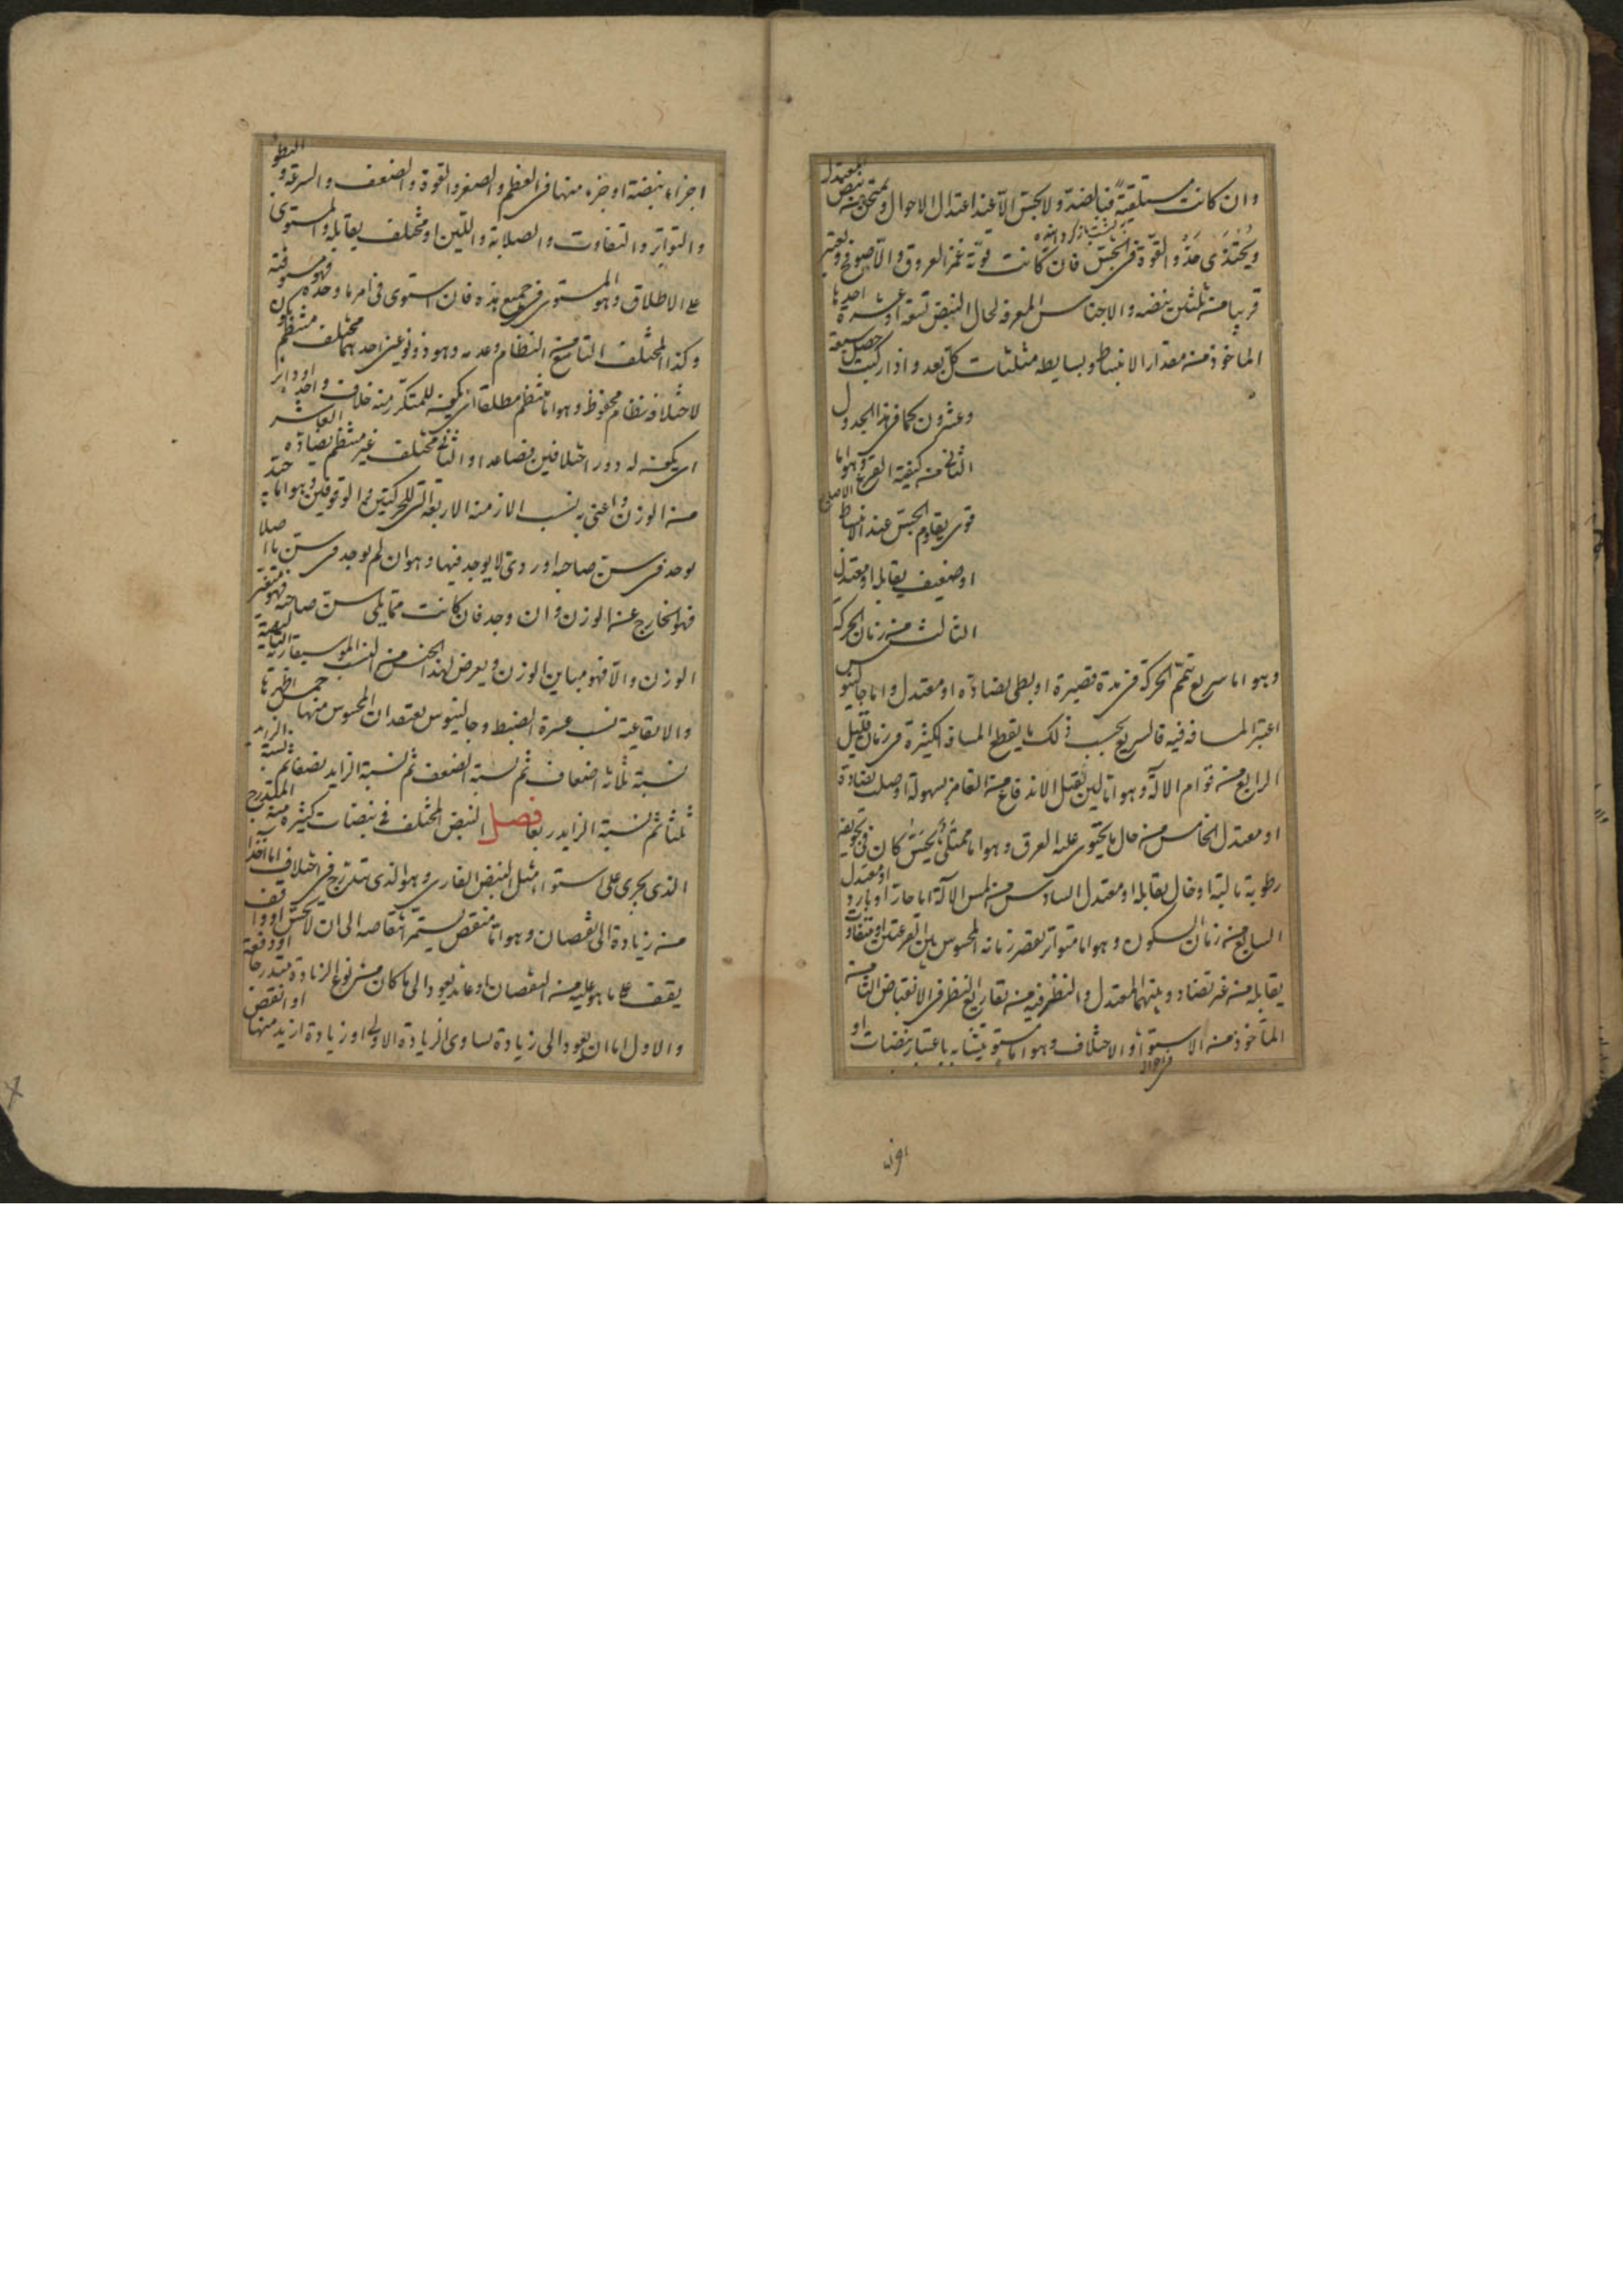 وان كانت مستلقية فنابضة ولا يحس الا عند اعتدال الاحوال ويمتحن منه نبض المعتدل
ويحتذى حذو القوة فى الجس فان كانت قوية غمز العروق والا صوفح ويعتبر
قريبا من ثلثين نبضه والاجناس المعرفة لحال النبض تسعة او عشرة احدها
الماخوذ من مقدار الانبساط وبسايطه مثلثات كل بعد واذا ركبت حصل سبعة
وعشرون كما فى هذا الجدول
الثانى من كيفية القرع وهو اما
قوى يقاوم الجس عند الانبساط
او ضعيف يقابله او معتدل
الثالث من زمان الحركة
وهو اما سريع تتم الحركة فى مدة قصيرة او بطى يضاده او معتدل واما جالينوس
اعتبر المسافة فيه فالسريع بحسب ذلك ما يقطع المسافة الكثيرة فى زمان قليل
الرابع من قوام الالة وهو اما لين يقبل الاندفاع من الغامز بسهولة او صلب يضاده
او معتدل الخامس من حال ما يحتوى عليه العرق وهو اما ممتلى يحس كان فى تجويفه
رطوبة مالية او خال يقابله او معتدل السادس من لمس الآلة اما حار او بارد او معتدل
السابع من زمان السكون وهو اما متواتر يقصر زمانه المحسوس بين القرعتين او متفاوت
يقابله من غير تضاد وبينهما المعتدل والنظر فيه من تقاريع النظر فى الانقباض الثامن
الماخوذ من الاستواء والاختلاف وهو اما مستو يتشابه باعتبار نبضات او
اجزاء نبضة او جزء منها فى العظم والصغر والقوة والضعف والسرعة والبطو
والتواتر والتفاوت والصلابة واللين او مختلف يقابله والمستوى
على الاطلاق وهو المستوى فى جميع هذه فان استوى فى امر ما وحده فهو مستو فيه
وكذا المختلف التاسع من النظام وعدمه وهو ذو نوعين احدهما مختلف منتظم يكون
لاختلافه نظام محفوظ وهو اما منتظم مطلقا اى يكون للمتكرر منه خلاف واحد او داير
اى يكون له دور اختلافين فصاعدا والثانى مختلف غير منتظم يضاده العاشر
من الوزن واعنى به نسب الازمنة الاربعة التى للحركتين والوقوفين وهو اما جيد
يوجد فى سن صاحبه او ردى لا يوجد فيها وهو ان لم يوجد فى سن ما اصلا
فهو الخارج عن الوزن وان وجد فان كانت مما يلى سن صاحبه فهو متغير
الوزن والا فهو مباين الوزن ويعرض لهذا الجنس من النسب الموسيقارية التاليفية
والايقاعية نسب عسرة الضبط وجالينوس يعتقد ان المحسوس منها خمس اظهرها
نسبة ثلاثة اضعاف ثم نسبة الضعف ثم نسبة الزايد نصفا ثم نسبة الزايد
ثلثا ثم نسبة الزايد ربعا فصل النبض المختلف فى نبضات كثيرة منه المتدرج
الذى يجرى على استواء مثل النبض الفارى وهو الذى يتدرج فى اختلاف اما آخذا
من زيادة الى نقصان وهو اما منقض يستمر انتقاصه الى ان لا يحس او واقف
يقف على ما هو عليه من النقصان او عايد يعود الى ما كان من نوع الزيادة متدرجا او دفعة
والاول اما ان يعود الى زيادة تساوى الزيادة الاولى او زيادة ازيد منها او انقص